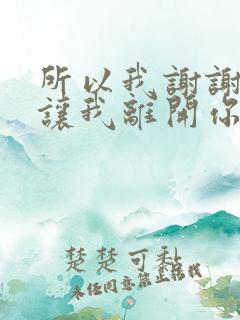 所以我謝謝
讓我離開你
楚楚可黏
未经同意禁止搭我